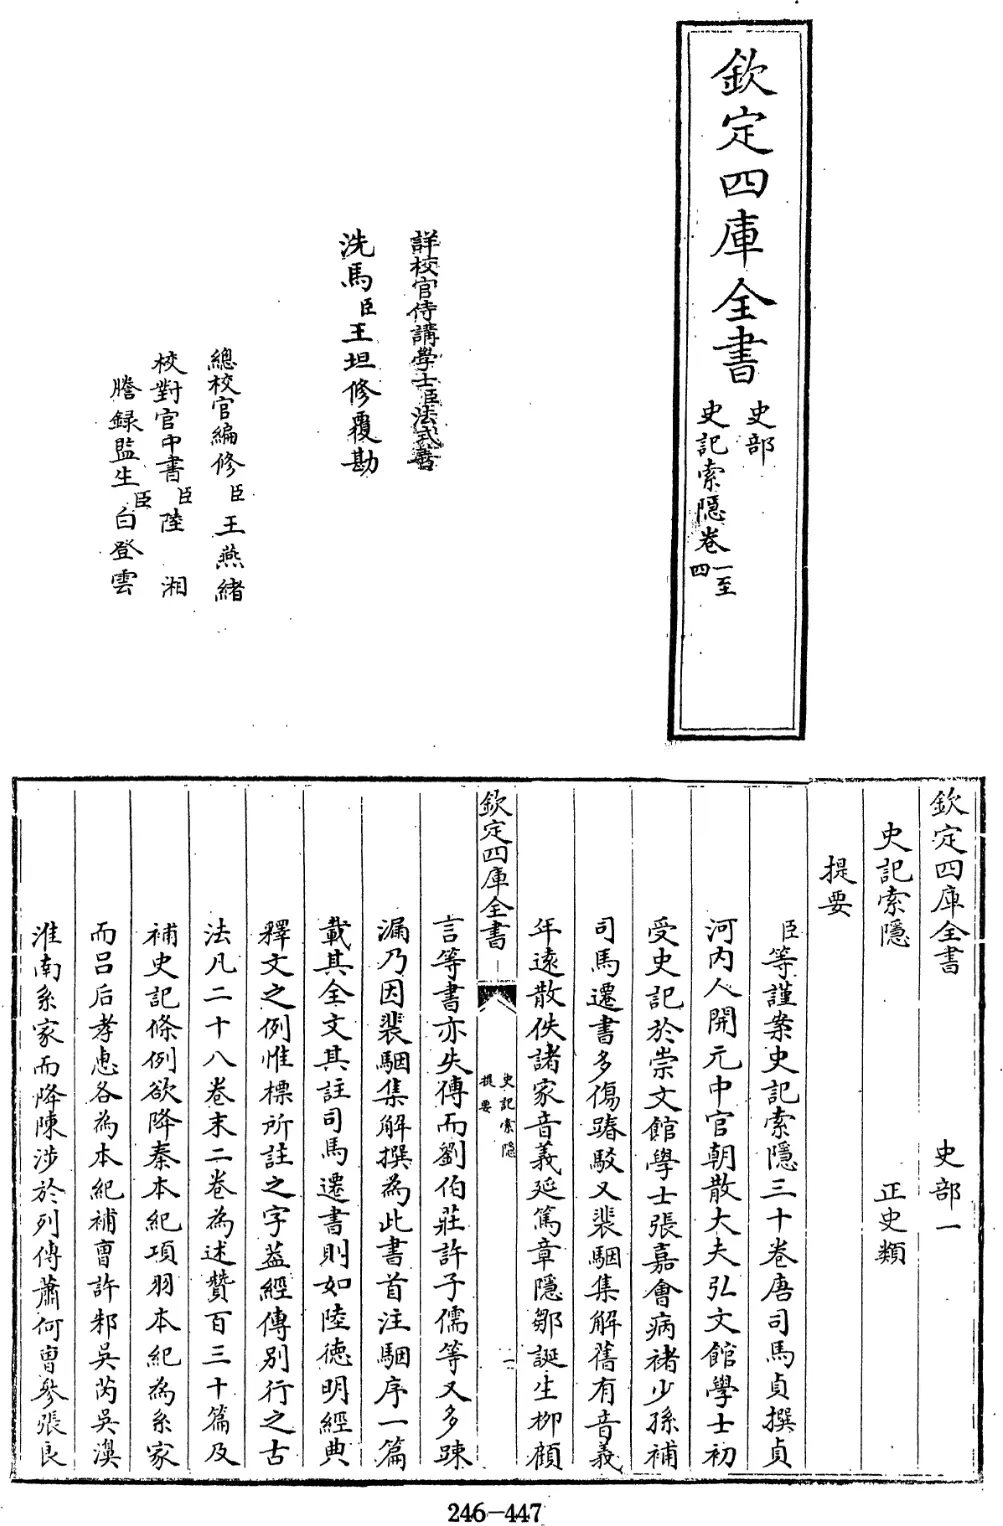 欽定四庫全書
史部
史記索隱卷一至四
詳校官侍講學士臣法式善
洗馬臣王坦修覆勘
總校官編修臣王燕緒
校對官中書臣陸湘
謄録監生臣白登雲
欽定四庫全書 史部一
史記索隱 正史類
提要
臣等謹案史記索隱三十卷唐司馬貞撰貞
河内人開元中官朝散大夫弘文館學士初
受史記於崇文館學士張嘉會病褚少孫補
司馬遷書多傷踳駁又裴駰集解舊有音義
年遠散佚諸家音義延篤章隱鄒誕生栁顧
言等書亦失傳而劉伯莊許子儒等又多踈
漏乃因裴駰集解撰為此書首注駰序一篇
載其全文其註司馬遷書則如陸徳明經典
釋文之例惟標所註之字葢經傳别行之古
法凡二十八卷末二卷為述贊百三十篇及
補史記條例欲降秦本紀項羽本紀為系家
而吕后孝惠各為本紀補曹許邾吳芮吳濞
淮南系家而降陳涉於列傳蕭何曹參張良
欽定四庫全書
史記索隱
提要
一
246-447